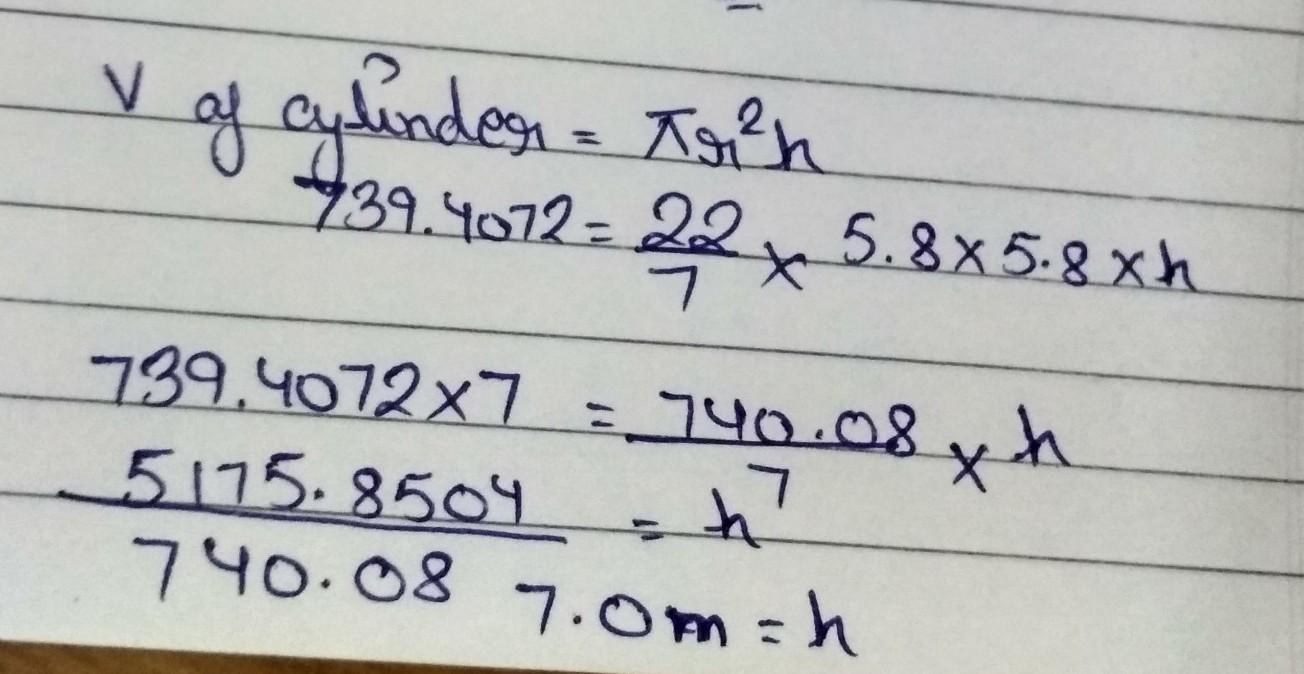 V of cylinder = πr²h
739.4072 = 22/7 × 5.8 × 5.8 × h
739.4072 × 7 = 740.08/7 × h
5175.8504/740.08 = h
7.0 m = h